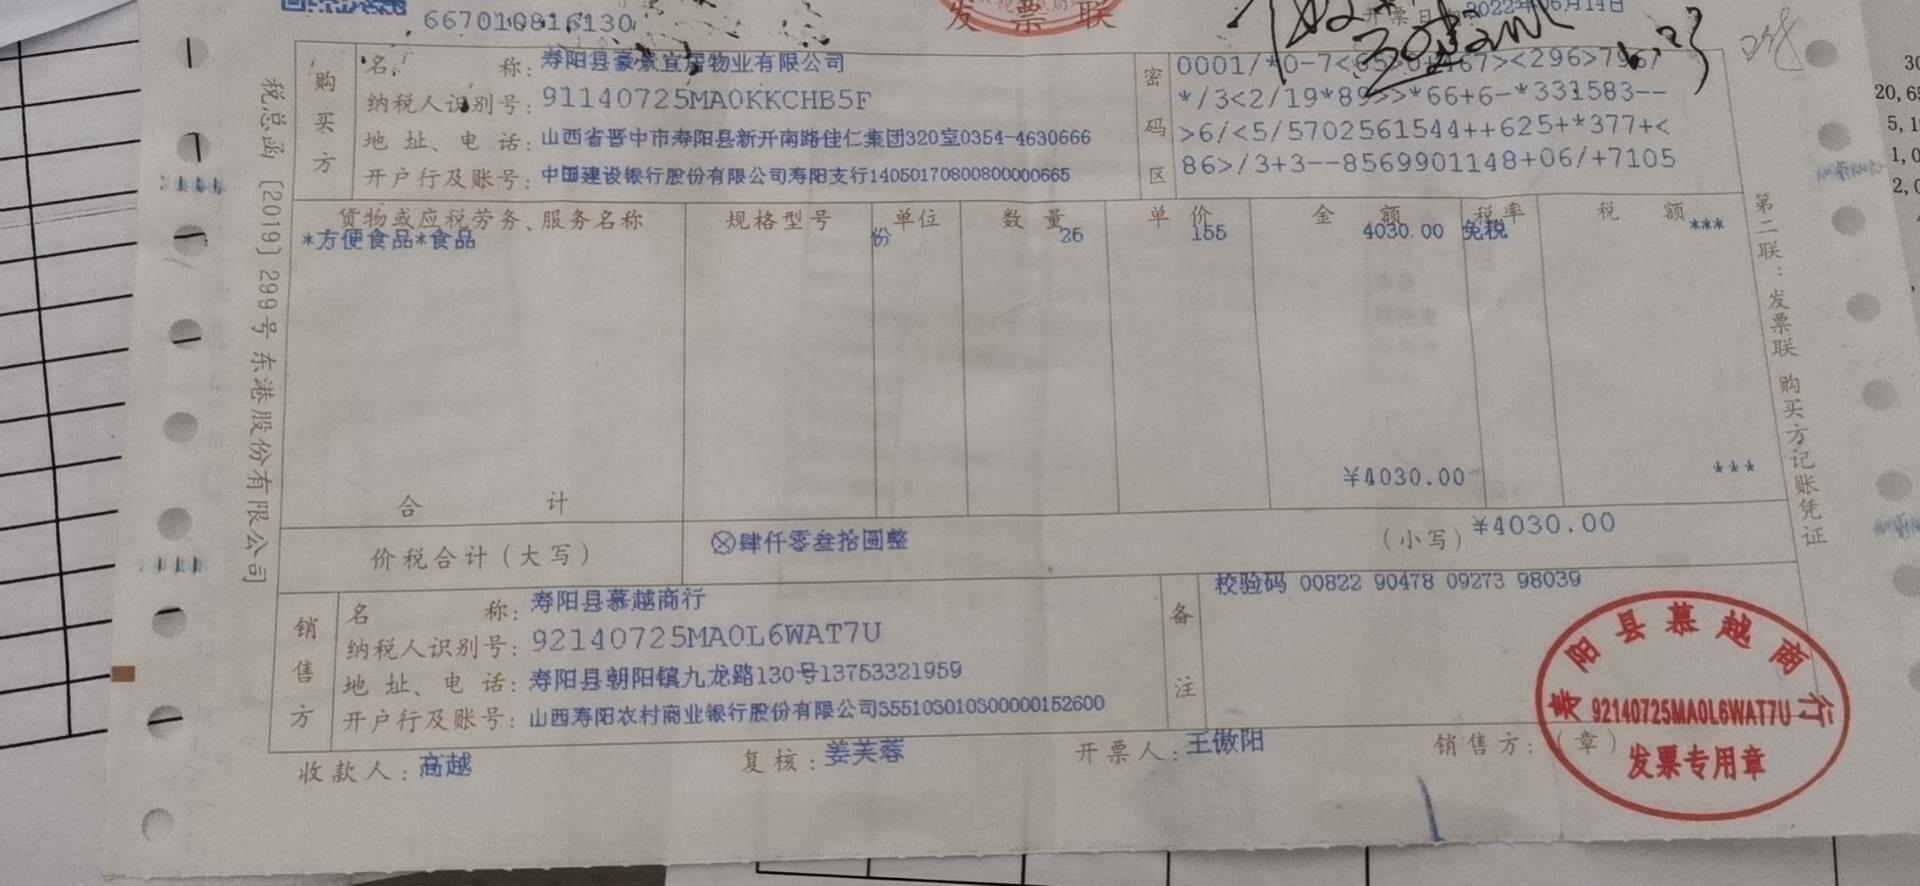 667010816130
发票联
开票日
2022年06月14日
购买方
名称：寿阳县豪景宜居物业有限公司
纳税人识别号：91140725MA0KKCHB5F
地址、电话：山西省晋中市寿阳县新开南路佳仁集团320室0354-4630666
开户行及账号：中国建设银行股份有限公司寿阳支行14050170800800000665
密码区
0001/*0-7<65 67><296>796/
*/3<2/19*89>>*66+6-*331583--
>6/<5/5702561544++625+*377+<
86>/3+3--8569901148+06/+7105
货物或应税劳务、服务名称 规格型号 单位 数量 单价 金额 税率 税额
*方便食品*食品 份 26 155 4030.00 免税 ***
合计 ¥4030.00 ***
价税合计（大写） ⊗肆仟零叁拾圆整 （小写）¥4030.00
销售方
名称：寿阳县慕越商行
纳税人识别号：92140725MA0L6WAT7U
地址、电话：寿阳县朝阳镇九龙路130号13753321959
开户行及账号：山西寿阳农村商业银行股份有限公司355103010300000152600
备注
校验码 00822 90478 09273 98039
收款人：高越 复核：姜芙蓉 开票人：王傲阳 销售方：（章）
寿阳县慕越商行
92140725MA0L6WAT7U
发票专用章
税总函〔2019〕299号东港股份有限公司
第二联：发票联 购买方记账凭证